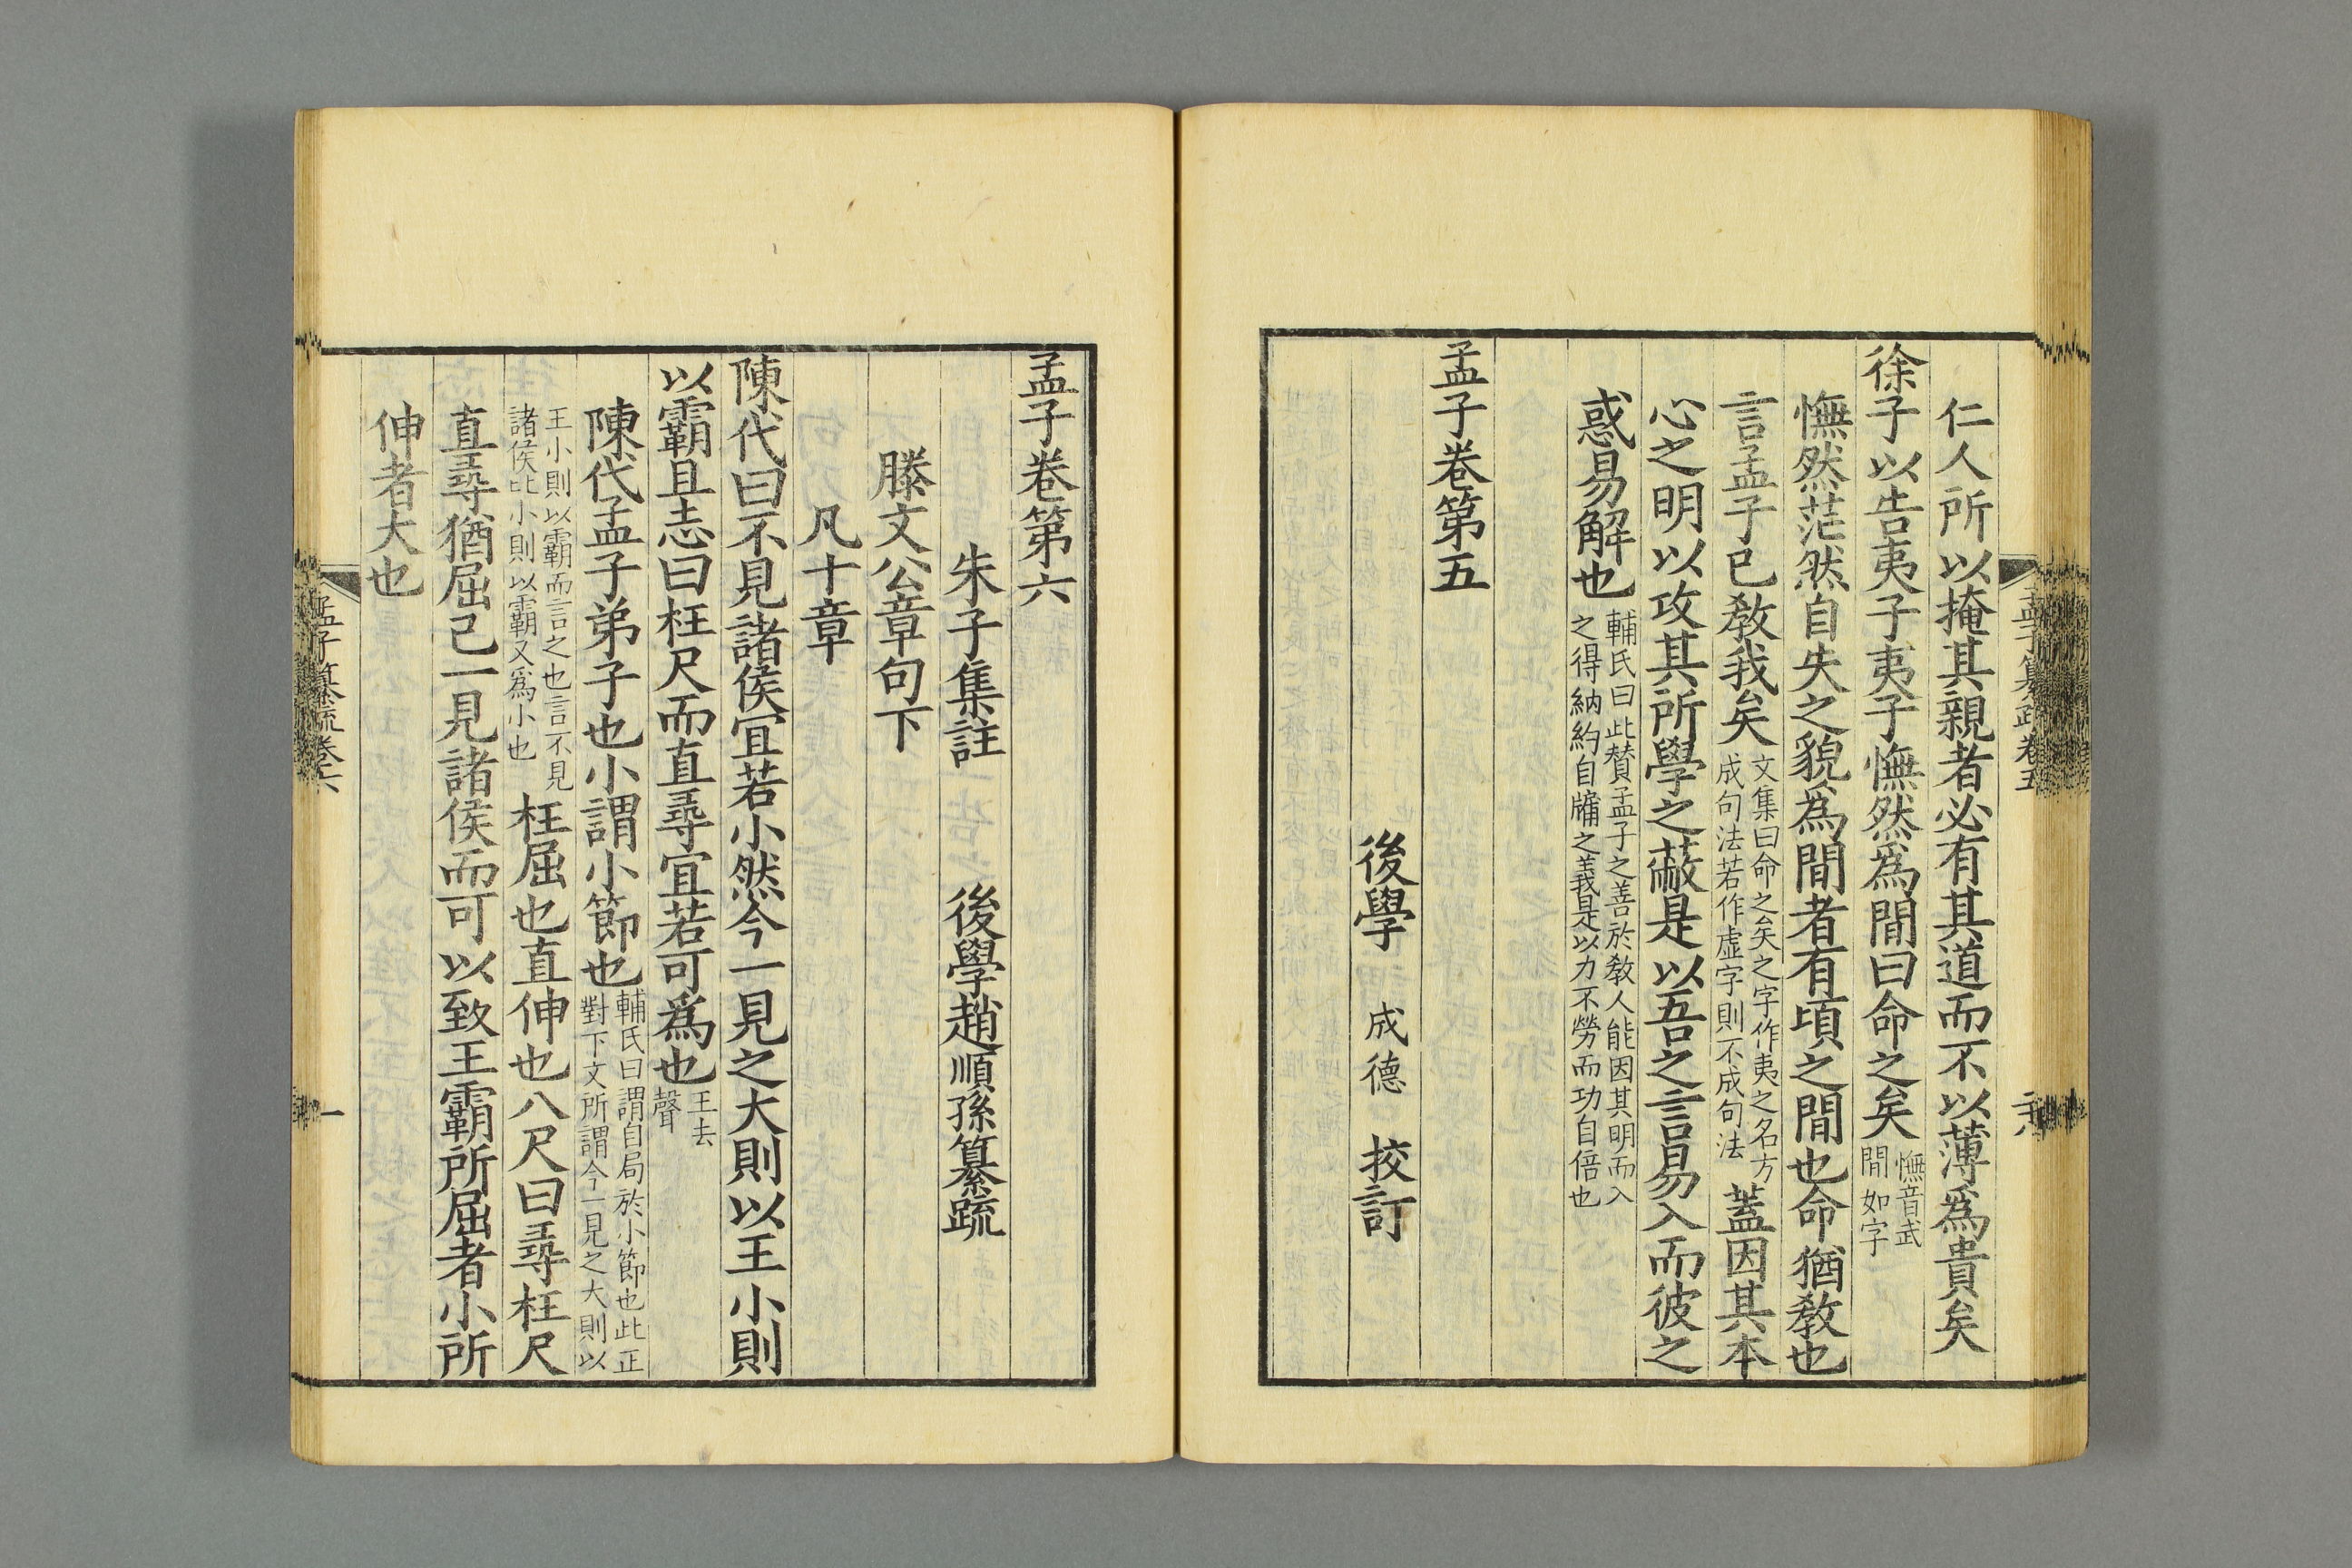 仁人所以掩其親者必有其道而不以薄爲貴矣
徐子以告夷子夷子憮然爲間曰命之矣
憮音武
間如字
憮然茫然自失之貌爲間者有頃之間也命猶敎也
言孟子已敎我矣
文集曰命之矣之字作夷之名方
成句法若作虛字則不成句法
蓋因其本
心之明以攻其所學之蔽是以吾之言易入而彼之
惑易解也
輔氏曰此贊孟子之善於敎人能因其明而入
之得納約自牖之義是以力不勞而功自倍也
孟子卷第五
後學 成德 挍訂
孟子纂疏卷五
孟子卷第六
朱子集註 後學趙順孫纂疏
滕文公章句下
凡十章
陳代曰不見諸侯宜若小然今一見之大則以王小則
以霸且志曰枉尺而直尋宜若可爲也
王去
聲
陳代孟子弟子也小謂小節也
輔氏曰謂自局於小節也此正
對下文所謂今一見之大則以
王小則以霸而言之也言不見
諸侯比小則以霸又爲小也
枉屈也直伸也八尺曰尋枉尺
直尋猶屈己一見諸侯而可以致王霸所屈者小所
伸者大也
孟子纂疏卷六
一